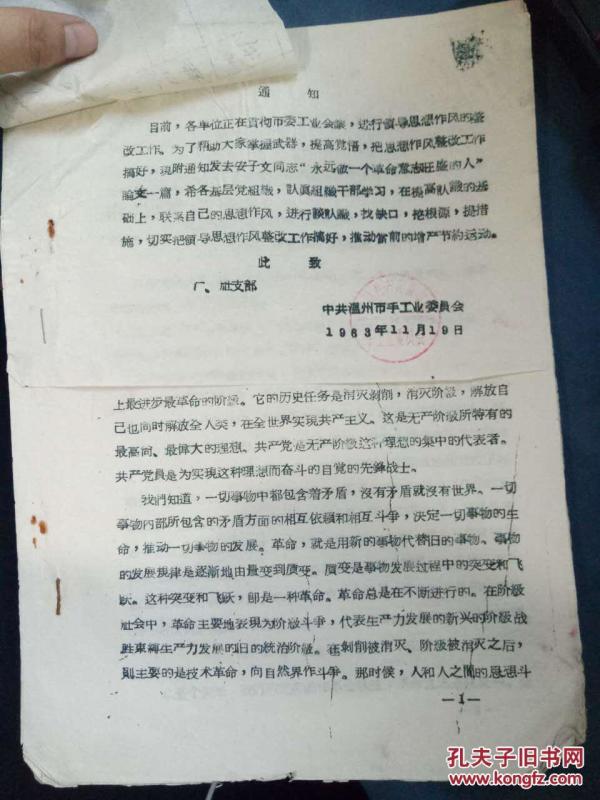 通 知
目前，各单位正在贯彻市委工业会议，进行领导思想作风的整
改工作。为了帮助大家掌握武器，提高觉悟，把思想作风整改工作
搞好，现附通知发去安子文同志“永远做一个革命意志旺盛的人”
论文一篇，希各基层党组织，认真组织干部学习，在提高认识的基
础上，联系自己的思想作风，进行谈认识，找缺口，挖根源，提措
施，切实把领导思想作风整改工作搞好，推动当前的增产节约运动。
此 致
厂、社支部
中共温州市手工业委员会
1963年11月19日
上最进步最革命的阶级。它的历史任务是消灭剥削，消灭阶级，解放自
己也同时解放全人类，在全世界实现共产主义。这是无产阶级所特有的
最高尚、最伟大的理想。共产党是无产阶级这种理想的集中的代表者。
共产党员是为实现这种理想而奋斗的自觉的先锋战士。
我们知道，一切事物中都包含着矛盾，没有矛盾就没有世界。一切
事物内部所包含的矛盾方面的相互依赖和相互斗争，决定一切事物的生
命，推动一切事物的发展。革命，就是用新的事物代替旧的事物。事物
的发展规律是逐渐地由量变到质变。质变是事物发展过程中的突变和飞
跃。这种突变和飞跃，即是一种革命。革命总是在不断进行的。在阶级
社会中，革命主要地表现为阶级斗争，代表生产力发展的新兴的阶级战
胜束缚生产力发展的旧的统治阶级。在剥削被消灭、阶级被消灭之后，
则主要的是技术革命，向自然界作斗争。那时候，人和人之间的思想斗
—1—
孔夫子旧书网
www.kongfz.com